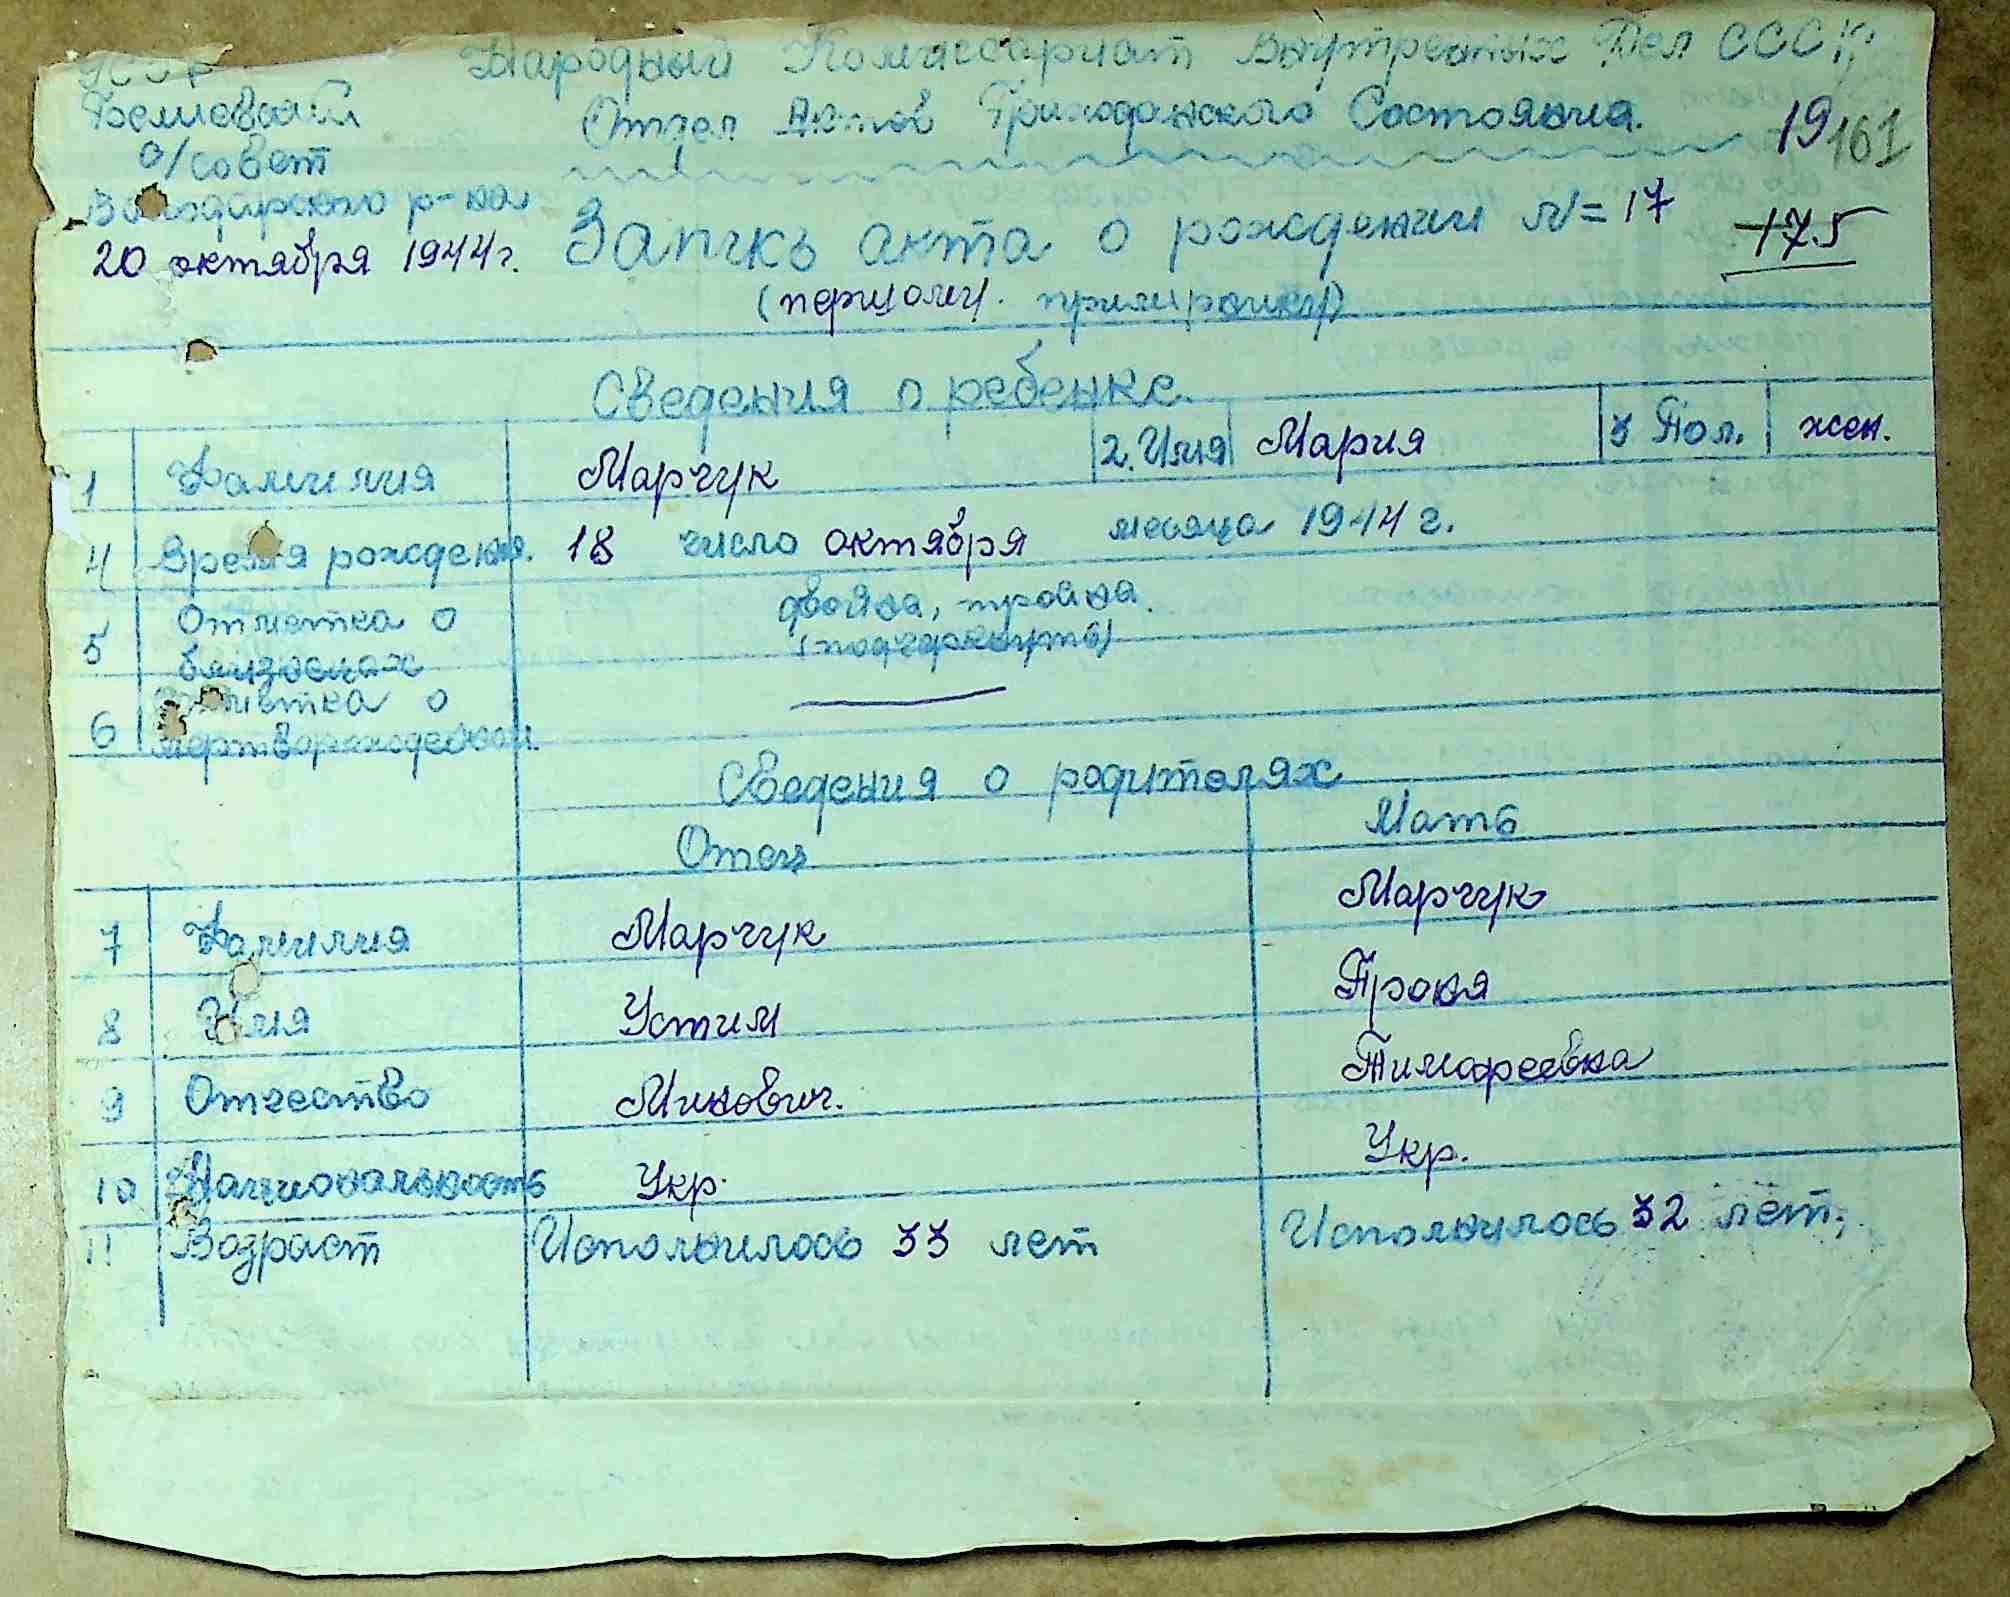 Народный Комиссариат Внутренних Дел СССР
Отдел Актов Гражданского Состояния.
с/совет
р-на
20 октября 1944 г.
19
161
175
Запись акта о рождении N=17
Сведения о ребенке
1 Фамилия Марчук 2. Имя Мария 3 Пол. жен.
4 Время рожден. 18 число октября месяца 1944 г.
5 Отметка о близнецах двойня, тройня. (подчеркнуть)
6 Отметка о мертворожденном
Сведения о родителях
Отец Мать
7 Фамилия Марчук Марчук
8 Имя Устим
9 Отчество Тимофеевна
10 Национальность Укр. Укр.
11 Возраст Исполнилось 33 лет Исполнилось 32 лет.